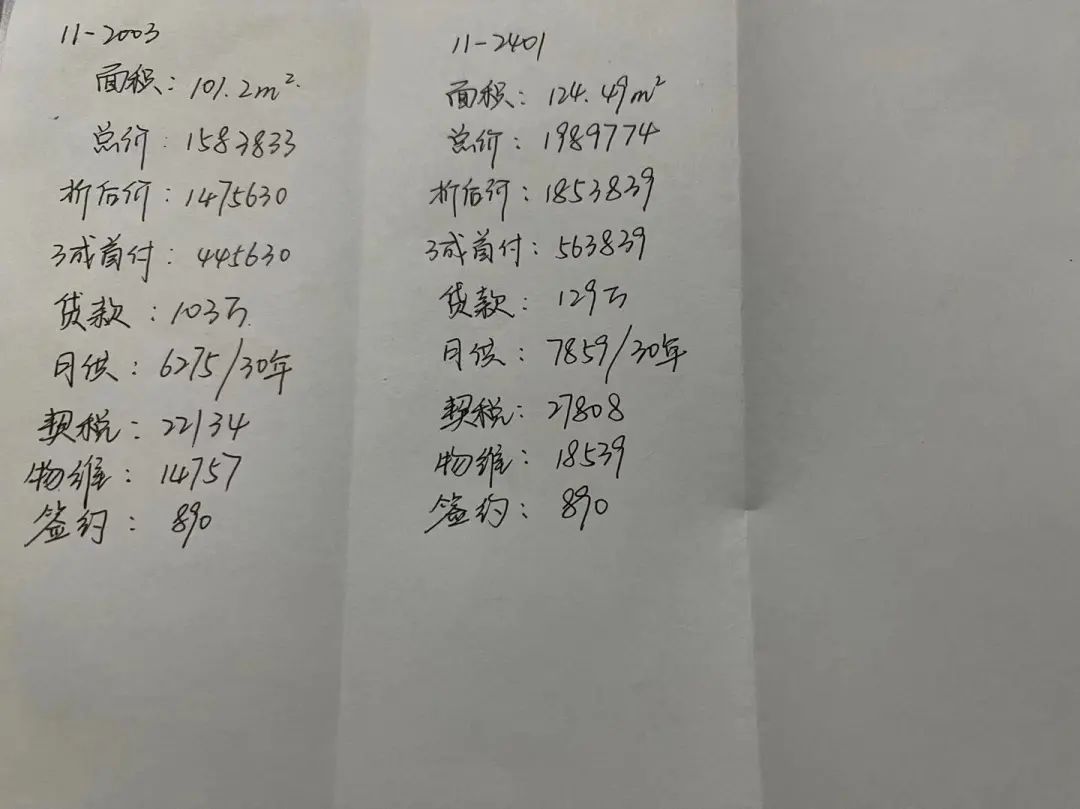 11-2003
面积：101.2m²
总价：1583833
折后价：1475630
3成首付：445630
贷款：103万
月供：6275/30年
契税：22134
物维：14757
签约：890
11-2401
面积：124.49m²
总价：1989774
折后价：1853839
3成首付：563839
贷款：129万
月供：7859/30年
契税：27808
物维：18539
签约：890